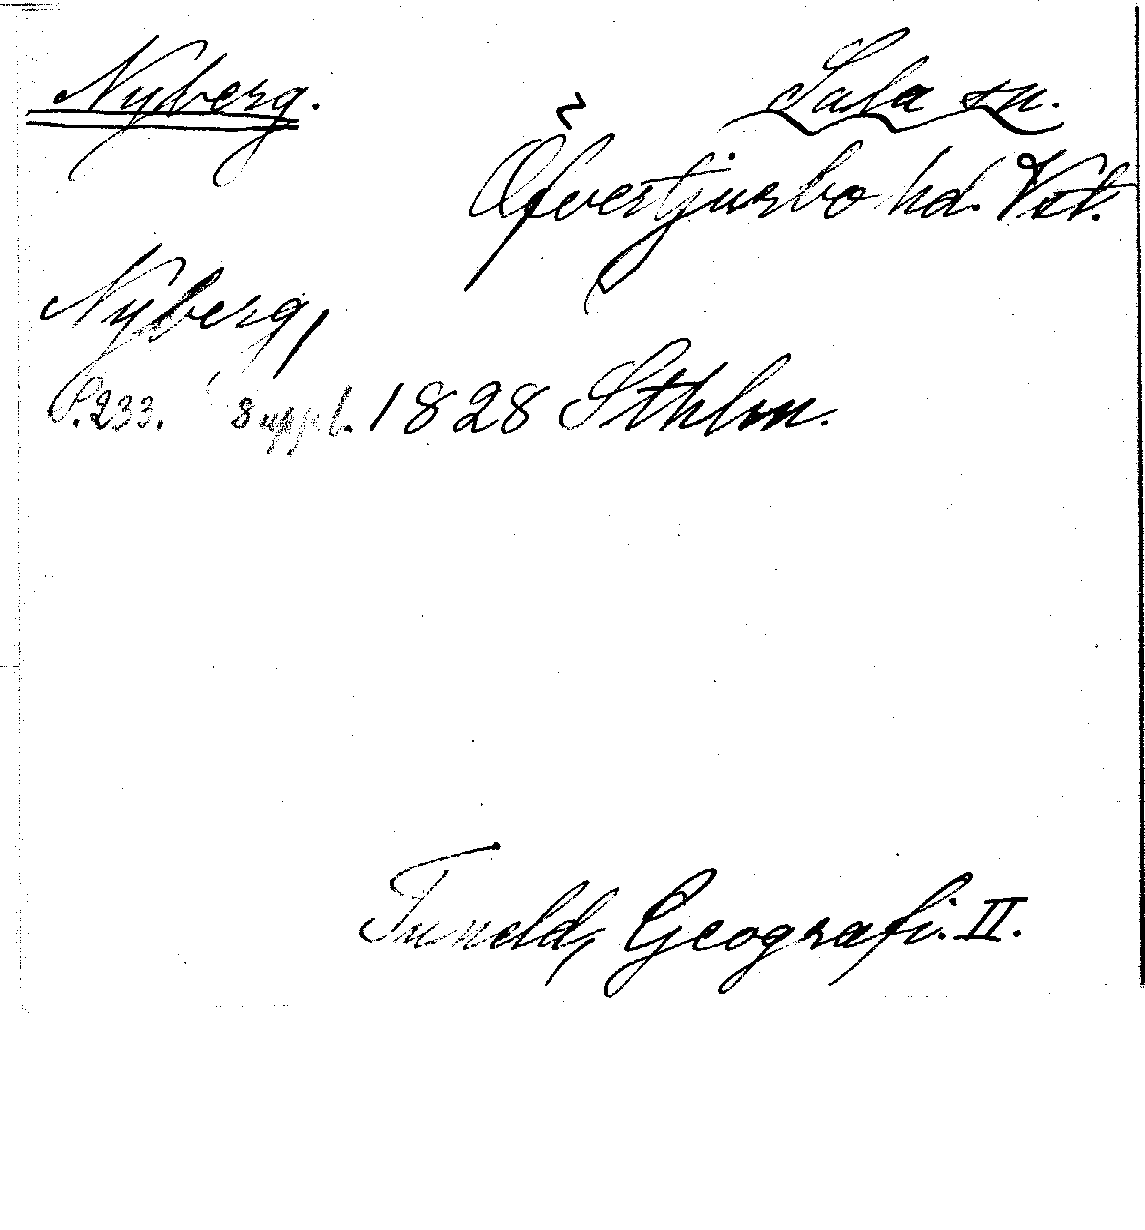 Nyberg.
Sala sn.
Öfvertjurbo hd. Vstl.
Nyberg,
P. 233. 8 uppl. 1828 Sthlm.
Tuneld, Geografi. II.